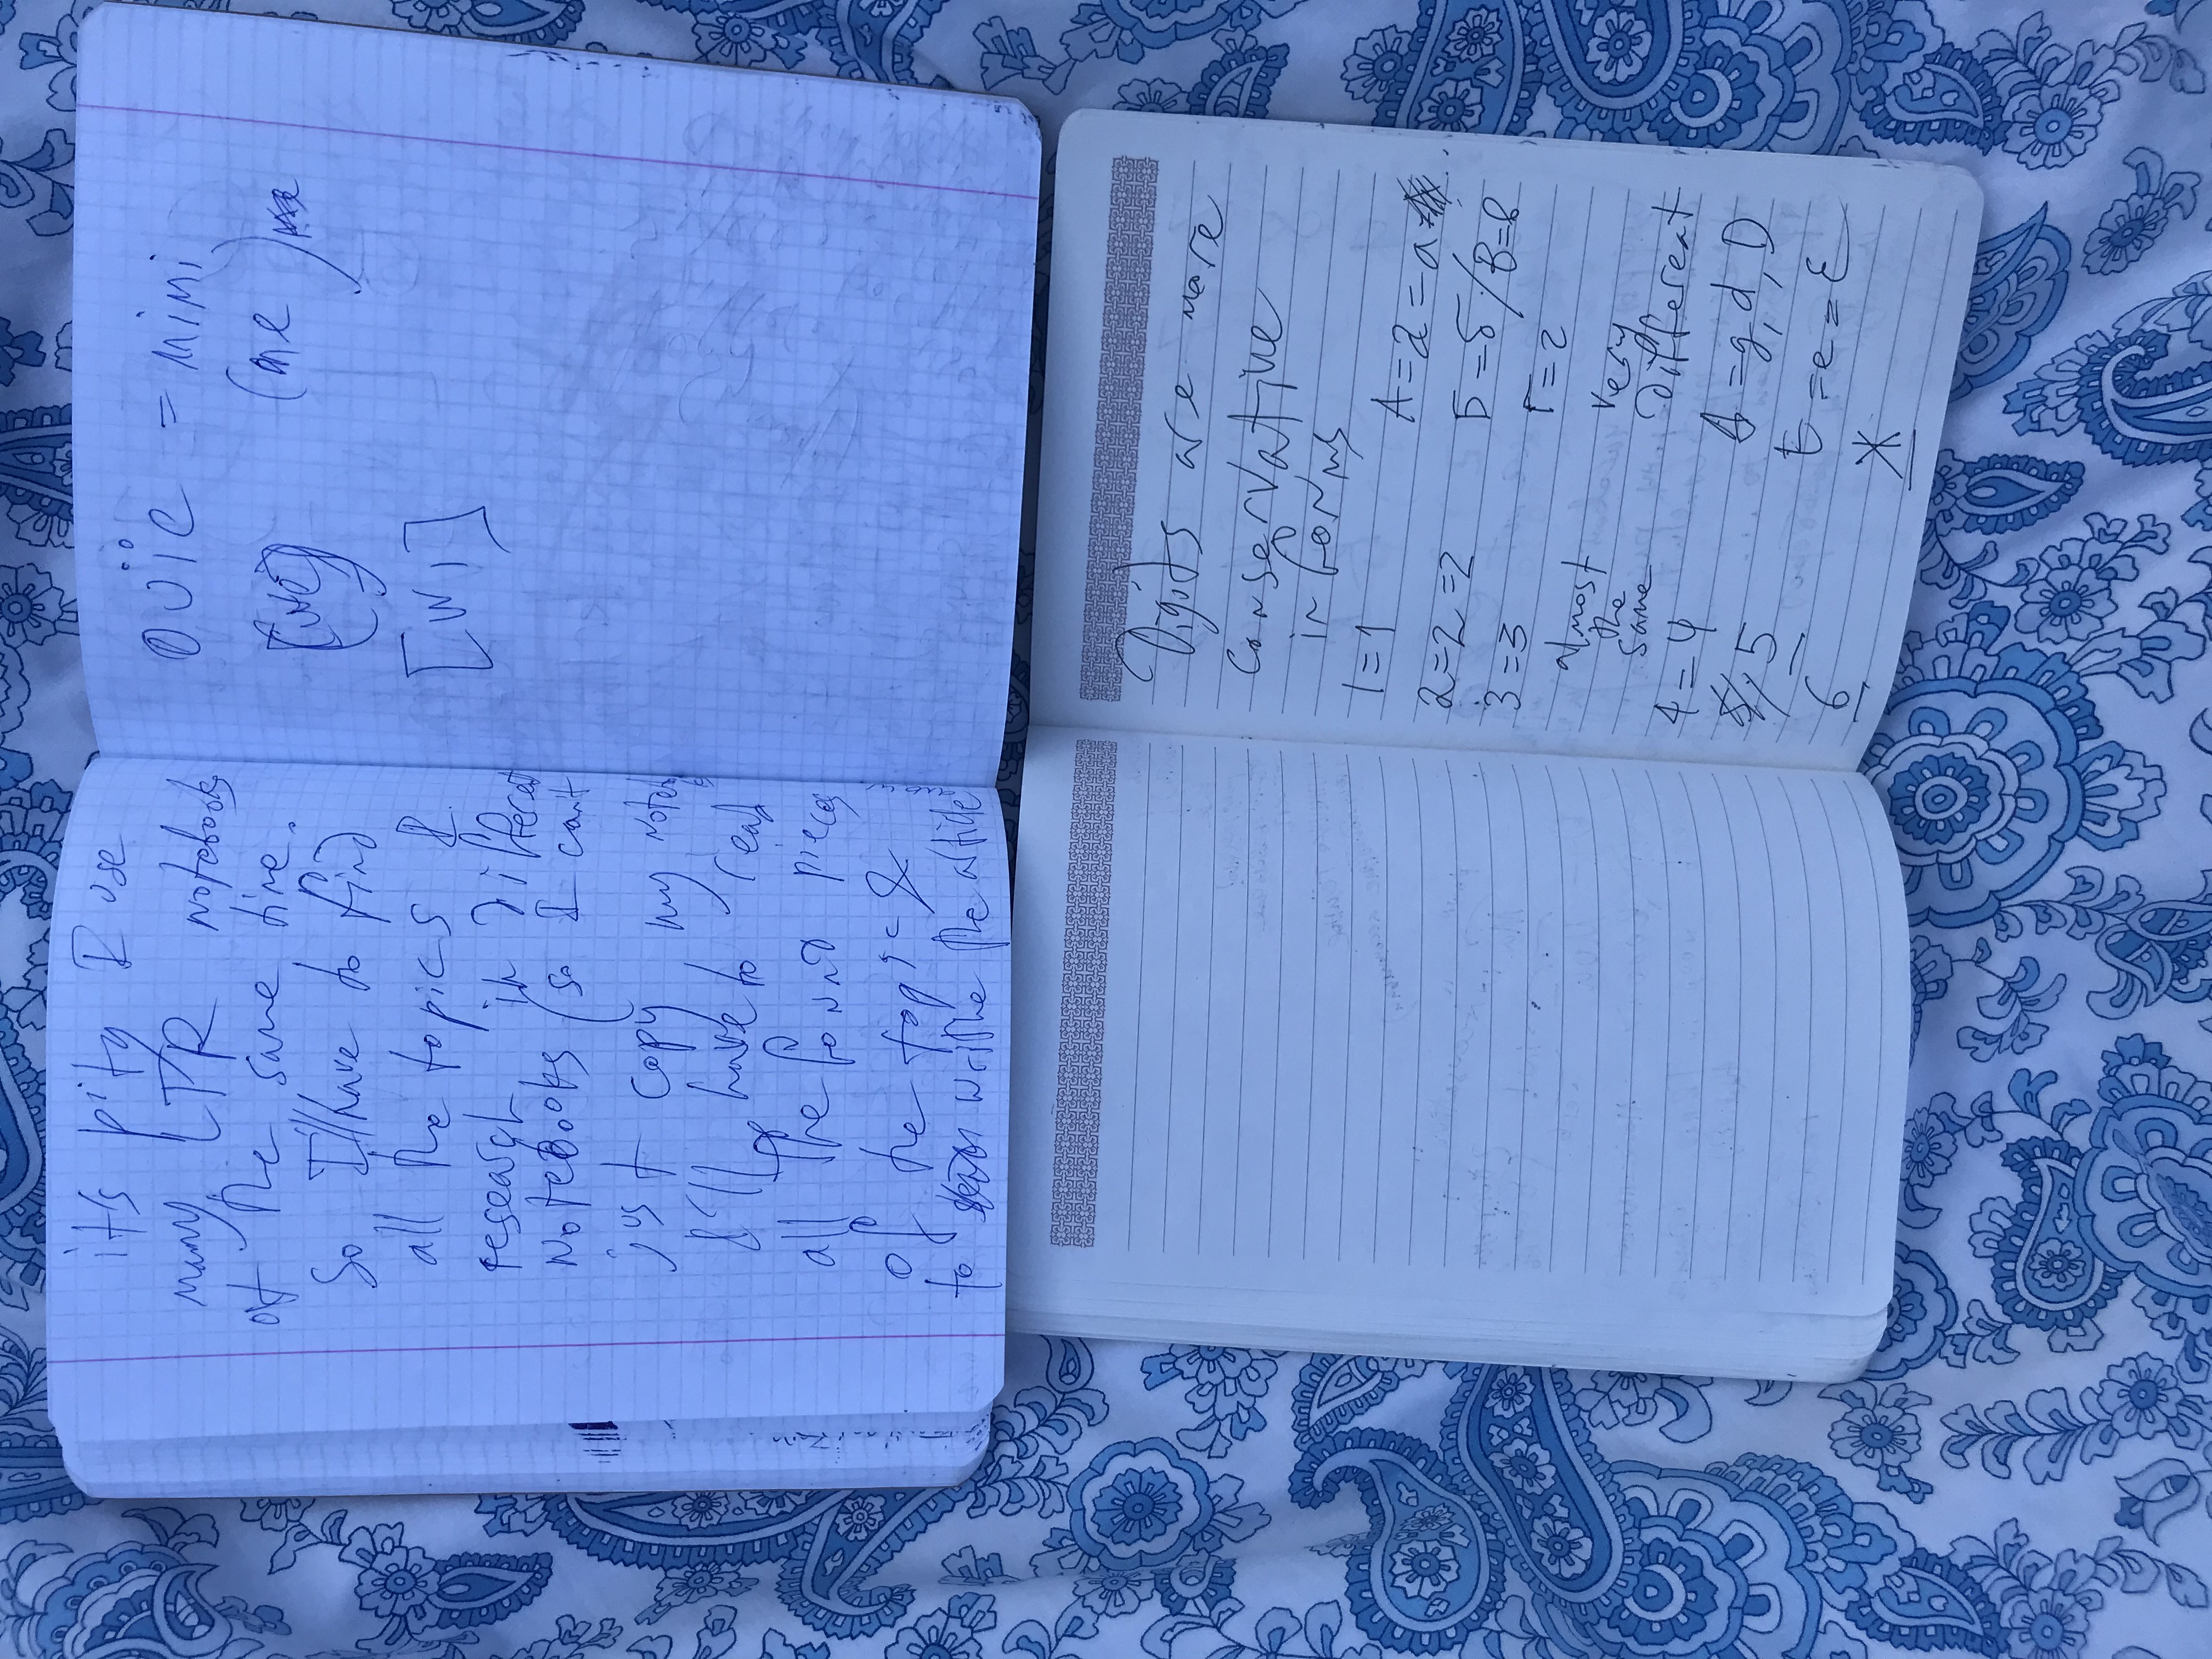 it's pity I use
many LTR notebooks
at the same time.
So I'll have to find
all the topics I
research in different
notebooks (so I can't
just copy my noteb
I'll have to read
all the found pieces
of the topic &
to writhe the article
ouïe = mimi
(me)
[wi]
Digits are more
conservative
in forms
1 = 1
2 = 2 = 2
3 = 3
almost
the
same
4 = 4
5
6
A = a = a
Б = б / В = в
Г = г
very
different
Д = g, d, D
E = e = Ɛ
Ж